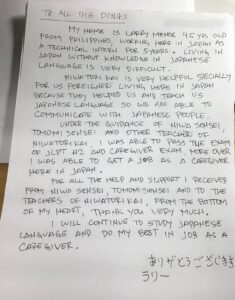 TO ALL THE DONORS
MY NAME IS LARRY MENOR 45 YRS OLD
FROM PHILIPPINES WORKING HERE IN JAPAN AS
A TECHNICAL INTERN FOR 3 YEARS. LIVING IN
JAPAN WITHOUT KNOWLEDGE IN JAPANESE
LANGUAGE IS VERY DIFFICULT.
NIWATORI KAI IS VERY HELPFUL SPECIALLY
FOR US FOREIGNER LIVING HERE IN JAPAN
BECAUSE THEY HELPED US AND TEACH US
JAPANESE LANGUAGE SO WE ARE ABLE TO
COMMUNICATE WITH JAPANESE PEOPLE.
UNDER THE GUIDANCE OF NIWA SENSEI,
TOMOMI SENSEI AND OTHER TEACHER OF
NIWATORI KAI, I WAS ABLE TO PASS THE EXAM
OF JLPT N2 AND CAREGIVER EXAM. MORE OVER
I WAS ABLE TO GET A JOB AS A CAREGIVER
HERE IN JAPAN.
FOR ALL THE HELP AND SUPPORT I RECEIVED
FROM NIWA SENSEI, TOMOMI SENSEI AND TO THE
TEACHERS OF NIWATORI KAI, FROM THE BOTTOM
OF MY HEART, THANK YOU VERY MUCH.
I WILL CONTINUE TO STUDY JAPANESE
LANGUAGE AND DO MY BEST IN JOB AS A
CAREGIVER.
ありがとうございます
ラリー